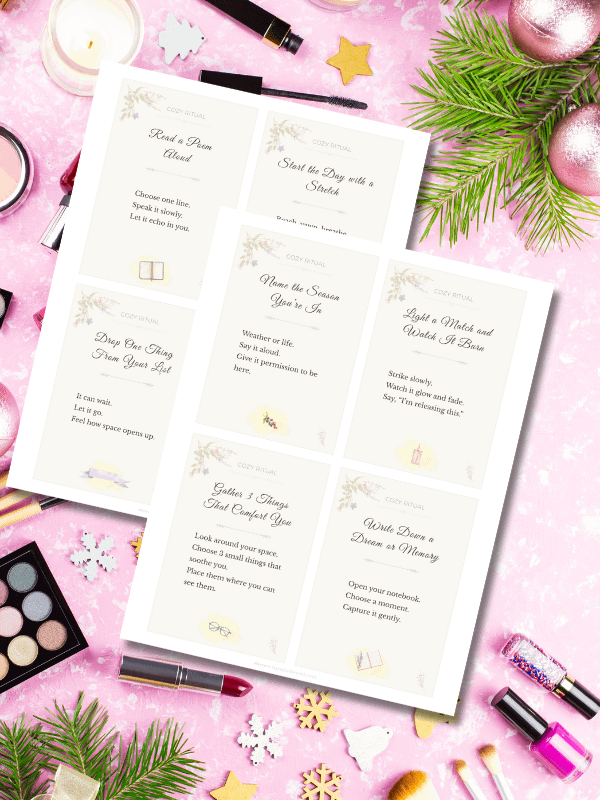 COZY RITUAL
Read a Poem
Aloud
Choose one line.
Speak it slowly.
Let it echo in you.
COZY RITUAL
Start the Day with a
Stretch
Reach, yawn, breathe
COZY RITUAL
Drop One Thing
From Your List
It can wait.
Let it go.
Feel how space opens up.
COZY RITUAL
Name the Season
You're In
Weather or life.
Say it aloud.
Give it permission to be
here.
COZY RITUAL
Light a Match and
Watch It Burn
Strike slowly.
Watch it glow and fade.
Say, "I'm releasing this."
COZY RITUAL
Gather 3 Things
That Comfort You
Look around your space.
Choose 3 small things that
soothe you.
Place them where you can
see them.
COZY RITUAL
Write Down a
Dream or Memory
Open your notebook.
Choose a moment.
Capture it gently.